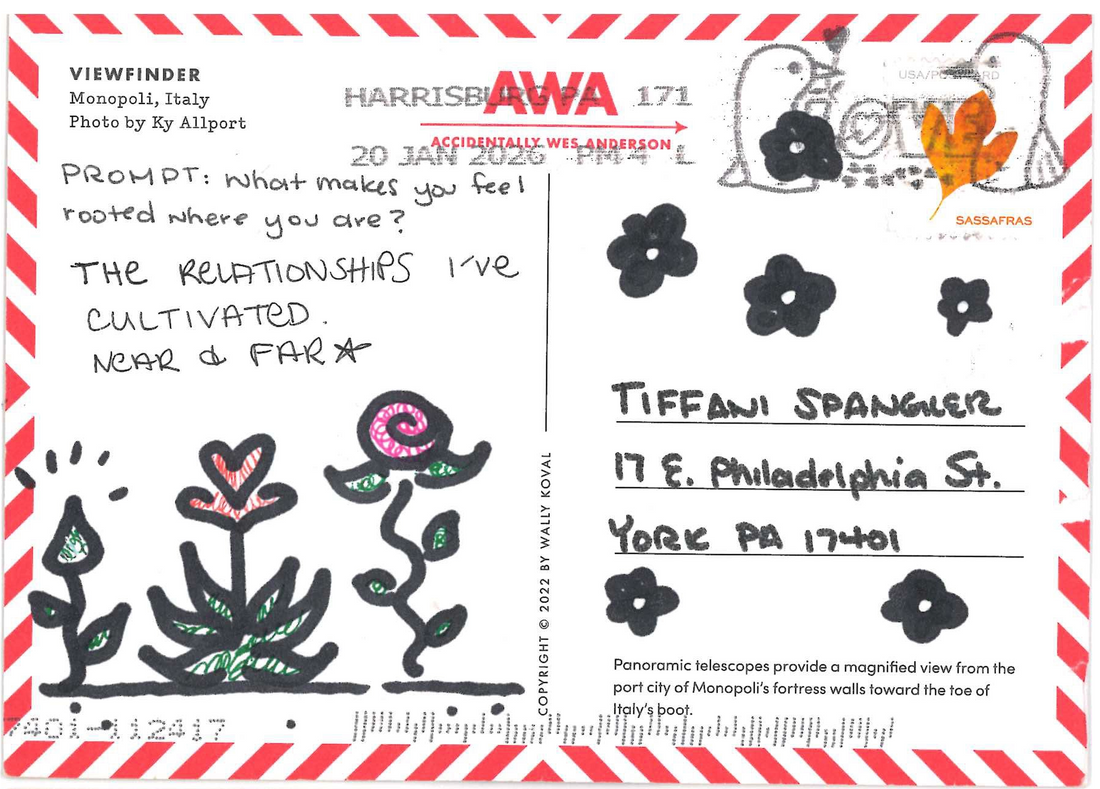 VIEWFINDER
Monopoli, Italy
Photo by Ky Allport
AWA
ACCIDENTALLY WES ANDERSON
HARRISBURG PA 171
20 JAN 2026 PM 4 L
USA/POSTCARD
LOVE
SASSAFRAS
PROMPT: What makes you feel
rooted where you are?
THE RELATIONSHIPS I've
CULTIVATED.
NEAR & FAR
TIFFANI SPANGLER
17 E. Philadelphia St.
YORK PA 17401
COPYRIGHT © 2022 BY WALLY KOVAL
Panoramic telescopes provide a magnified view from the
port city of Monopoli's fortress walls toward the toe of
Italy's boot.
7401-112417